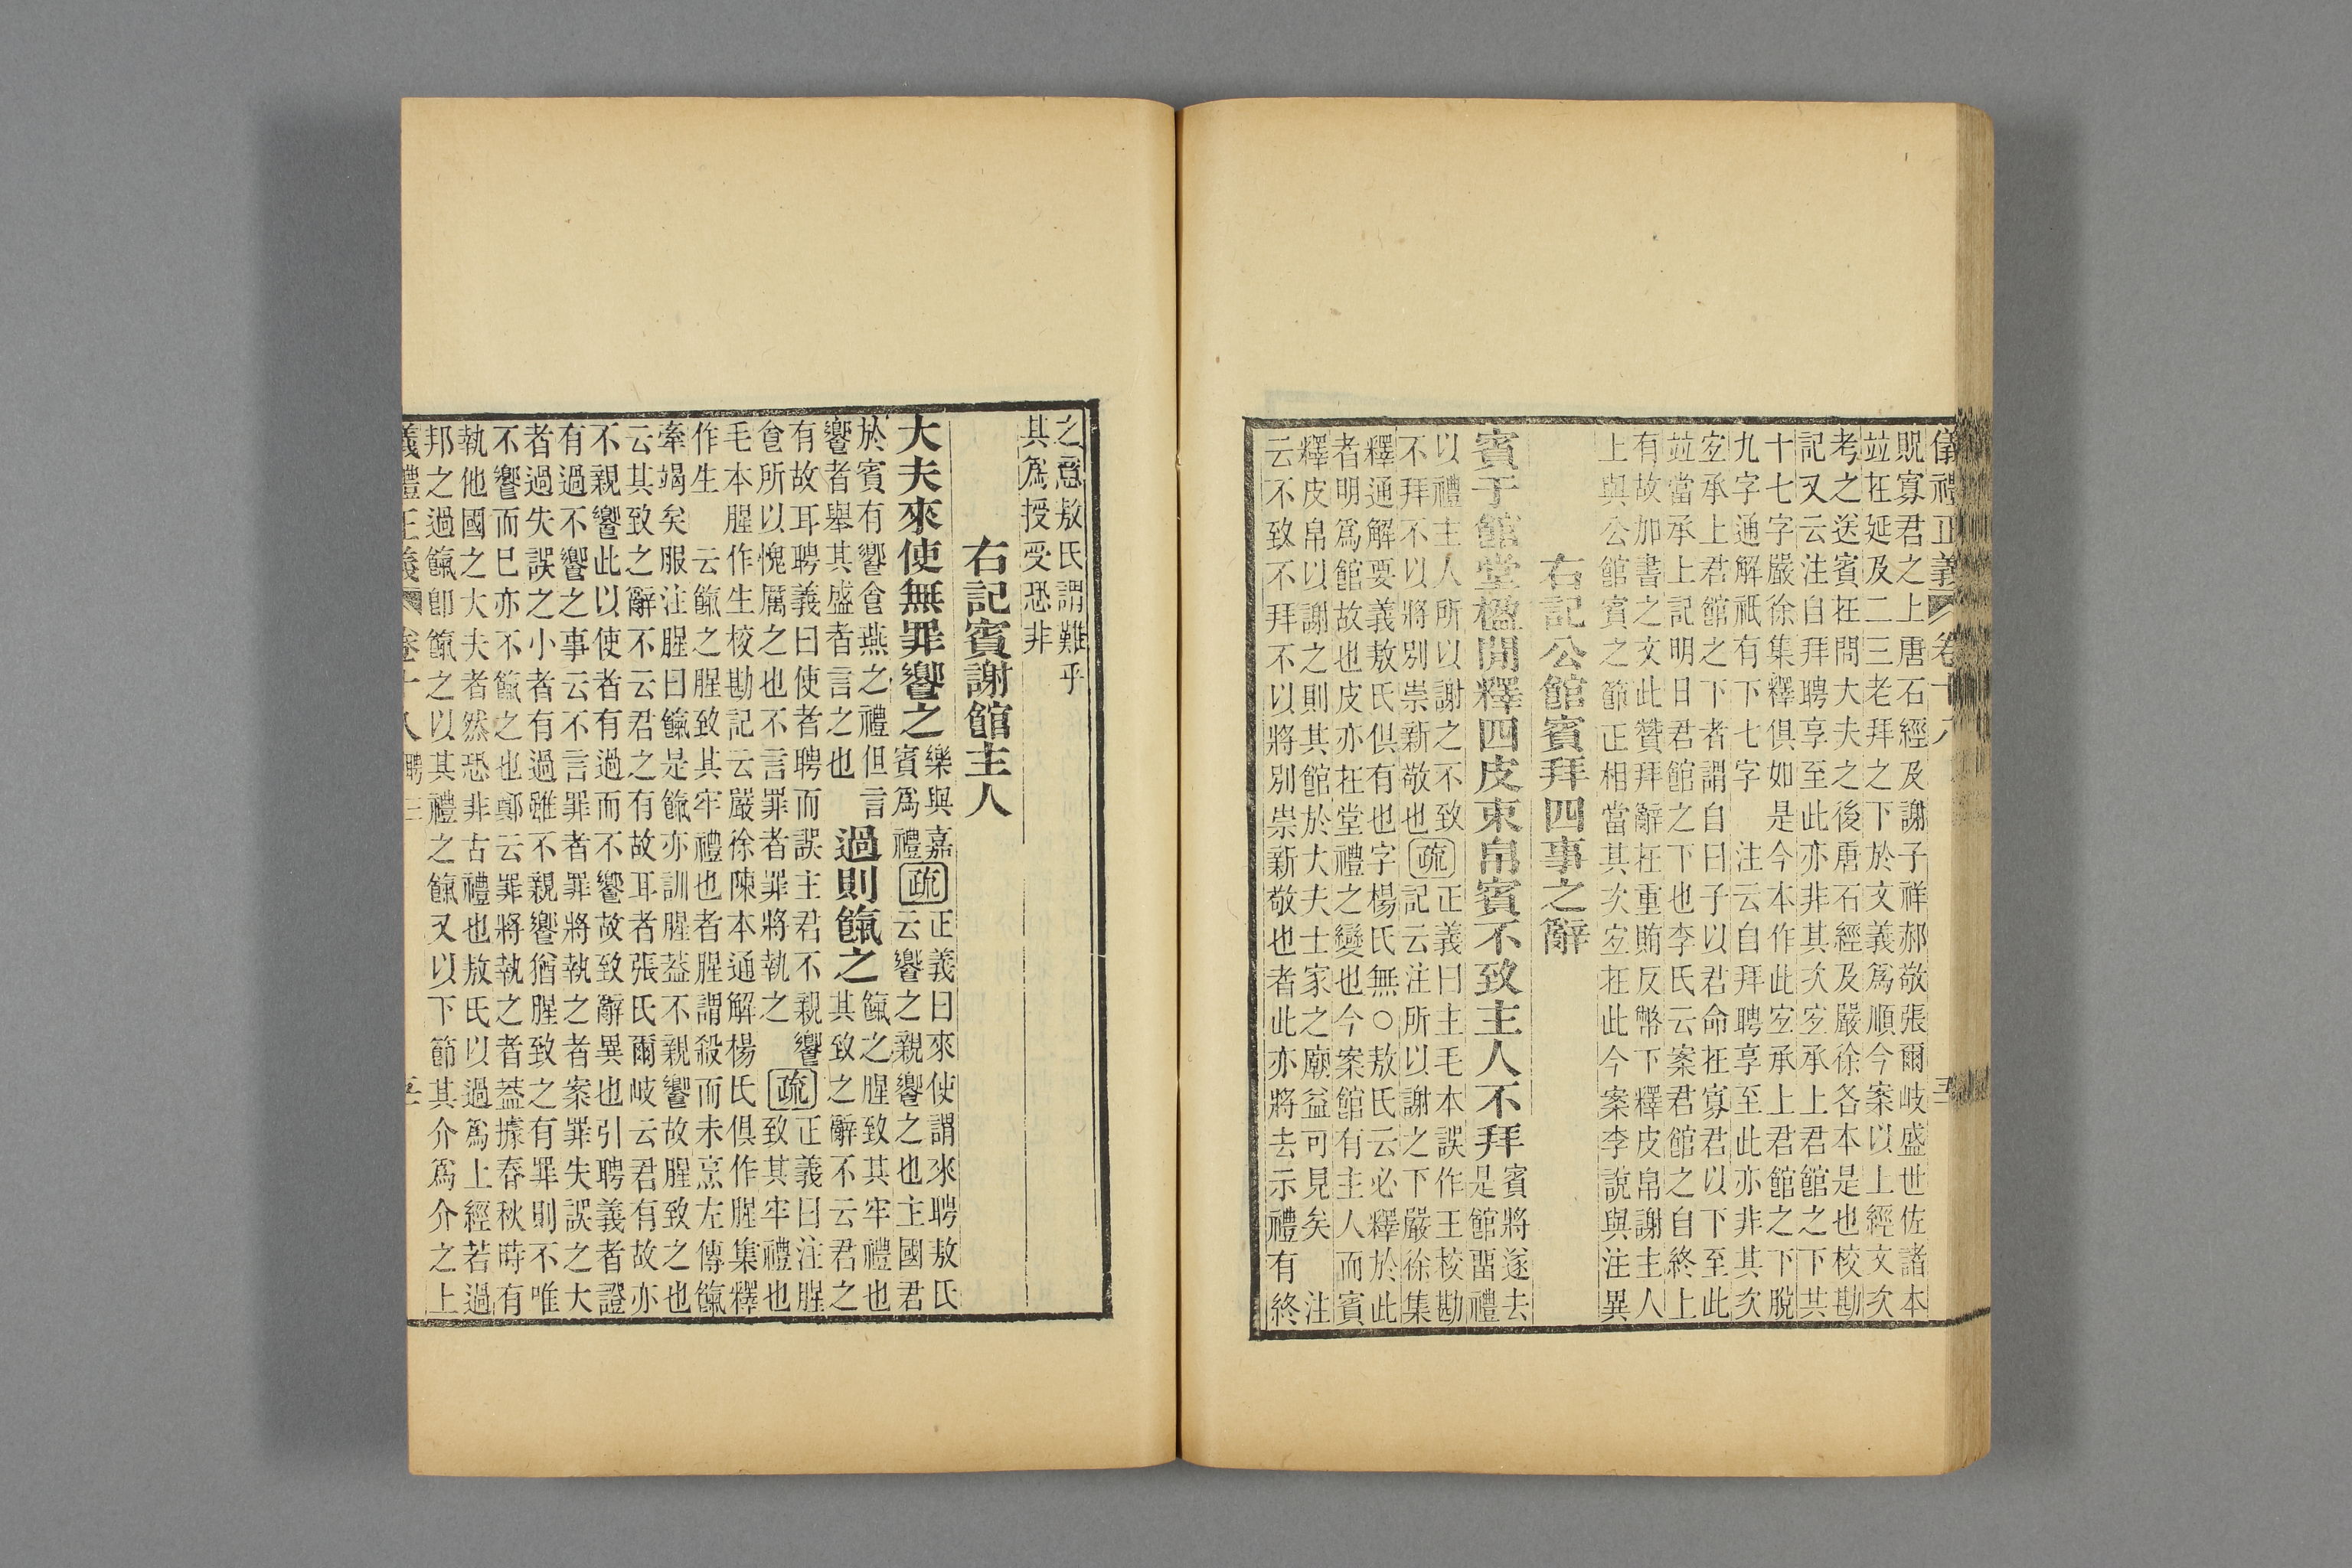 儀禮正義 卷十八
貺寡君之上唐石經及謝子祥郝敬張爾岐盛世佐諸本
竝在延及二三老拜之下於文義爲順今案以上經文次
考之送賓在問大夫之後唐石經及嚴徐各本是也校勘
記又云注自拜聘享至此亦非其次宐承上君館之下共
十七字嚴徐集釋俱如是今本作此宐承上君館之下脫
九字通解衹有下七字 注云自拜聘享至此亦非其次
宐承上君館之下者謂自曰子以君命在寡君以下至此
竝當承上記明日君館之下也李氏云案君館之自終上
有故加書之文此贊拜辭在重賄反幣下釋皮帛謝主人
上與公館賓之節正相當其次宐在此今案李說與注異
右記公館賓拜四事之辭
賓于館堂楹閒釋四皮束帛賓不致主人不拜
賓將遂去
是館畱禮
以禮主人所以謝之不致
不拜不以將別崇新敬也
疏
正義曰主毛本誤作王校勘
記云注所以謝之下嚴徐集
釋通解要義敖氏俱有也字楊氏無○敖氏云必釋於此
者明爲館故也皮亦在堂禮之變也今案館有主人而賓
釋皮帛以謝之則其館於大夫士家之廟益可見矣 注
云不致不拜不以將別崇新敬也者此亦將去示禮有終
之意敖氏謂難乎
其爲授受恐非
右記賓謝館主人
大夫來使無罪饗之
樂與嘉
賓爲禮
疏
正義曰來使謂來聘敖氏
云饗之親饗之也主國君
於賓有饗食燕之禮但言
饗者舉其盛者言之也
過則餼之
餼之腥致其牢禮也
其致之辭不云君之
有故耳聘義曰使者聘而誤主君不親饗
食所以愧厲之也不言罪者罪將執之
疏
正義曰注腥
致其牢禮也
毛本腥作生校勘記云嚴徐陳本通解楊氏俱作腥集釋
作生 云餼之腥致其牢禮也者腥謂殺而未烹左傳餼
牽竭矣服注腥曰餼是餼亦訓腥葢不親饗故腥致之也
云其致之辭不云君之有故耳者張氏爾岐云君有故亦
不親饗此以使者有過而不饗故致辭異也引聘義者證
有過不饗之事云不言罪者罪將執之者案罪失誤之大
者過失誤之小者有過雖不親饗猶腥致之有罪則不唯
不饗而已亦不餼之也鄭云罪將執之者葢據春秋時有
執他國之大夫者然恐非古禮也敖氏以過爲上經若過
邦之過餼卽餼之以其禮之餼又以下節其介爲介之上
義禮正義 卷十八 聘三